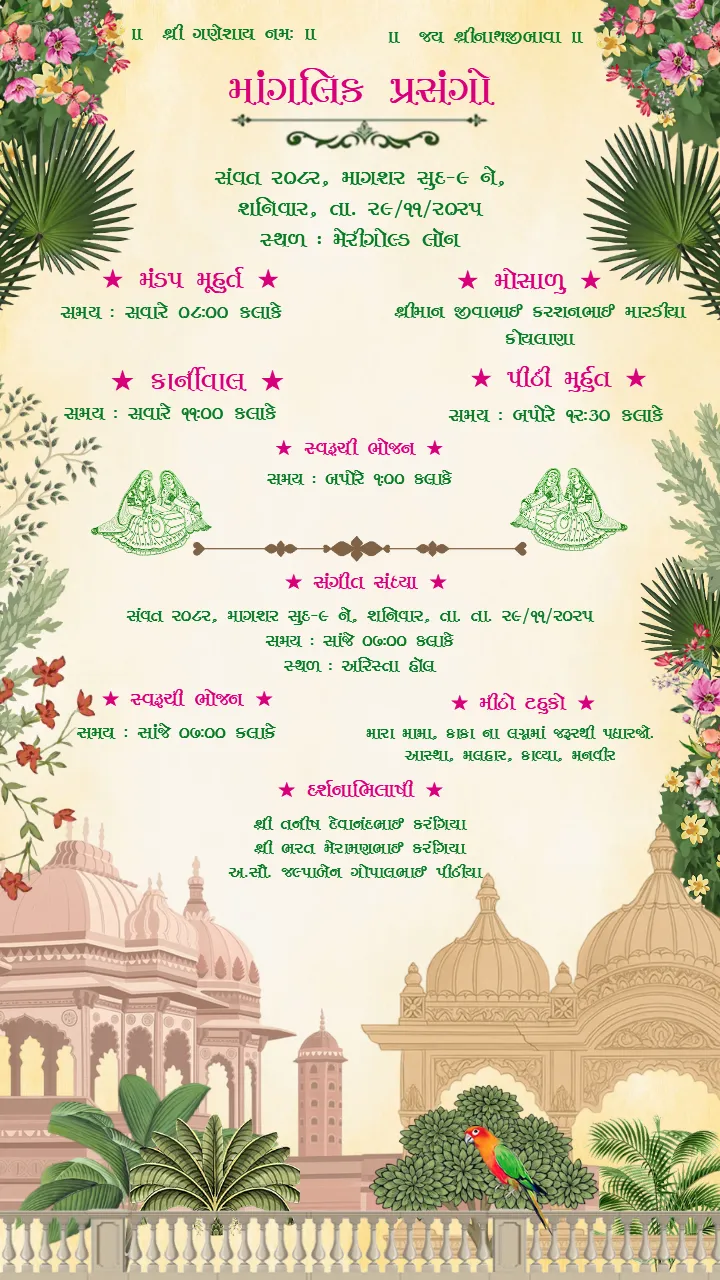 ॥ શ્રી ગણેશાય નમઃ ॥
॥ જય શ્રીનાથજીબાવા ॥
માંગલિક પ્રસંગો
સંવત ૨૦૮૨, માગશર સુદ-૯ ને,
શનિવાર, તા. ૨૯/૧૧/૨૦૨૫
સ્થળ : મેરીગોલ્ડ લૉન
★ મંડપ મૂહુર્ત ★
સમય : સવારે ૦૮:૦૦ કલાકે
★ મોસાળુ ★
શ્રીમાન જીવાભાઈ કરશનભાઈ મારડીયા
કોયલાણા
★ કાર્નીવાલ ★
સમય : સવારે ૧૧:૦૦ કલાકે
★ પીઠી મુર્હુત ★
સમય : બપોરે ૧૨:૩૦ કલાકે
★ સ્વરૂચી ભોજન ★
સમય : બપોરે ૧:૦૦ કલાકે
★ સંગીત સંધ્યા ★
સંવત ૨૦૮૨, માગશર સુદ-૯ ને, શનિવાર, તા. તા. ૨૯/૧૧/૨૦૨૫
સમય : સાંજે ૦૭:૦૦ કલાકે
સ્થળ : અરિસ્તા હૉલ
★ સ્વરૂચી ભોજન ★
સમય : સાંજે ૦૭:૦૦ કલાકે
★ મીઠો ટહુકો ★
મારા મામા, કાકા ના લગ્નમાં જરૂરથી પધારજો.
આસ્થા, મલહાર, કાવ્યા, મનવીર
★ દર્શનાભિલાષી ★
શ્રી તનીષ દેવાનંદભાઈ કરંગિયા
શ્રી ભરત મેરામણભાઈ કરંગિયા
અ.સૌ. જલ્પાબેન ગોપાલભાઈ પીઠીયા